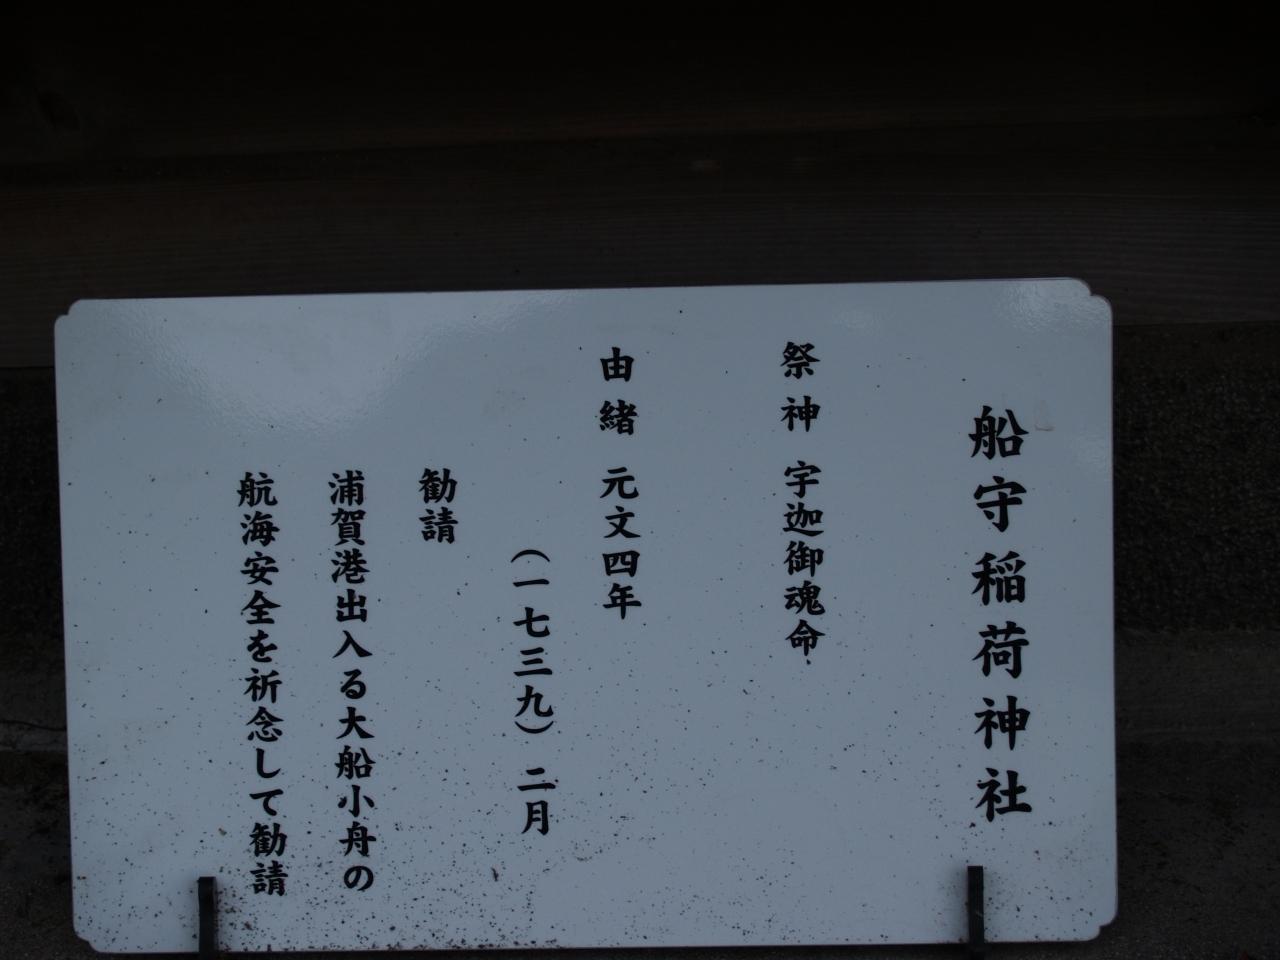 船守稲荷神社
祭神 宇迦御魂命
由緒 元文四年
(一七三九)二月
勧請
浦賀港出入る大船小舟の
航海安全を祈念して勧請